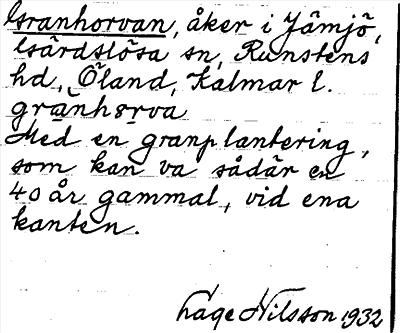 Granhorvan, åker i Jämjö,
Gärdslösa sn, Runstens
hd, Öland, Kalmar l.
grānhørva
Med en granplantering,
som kan va sådär en
40 år gammal, vid ena
kanten.
Lage Nilsson 1932